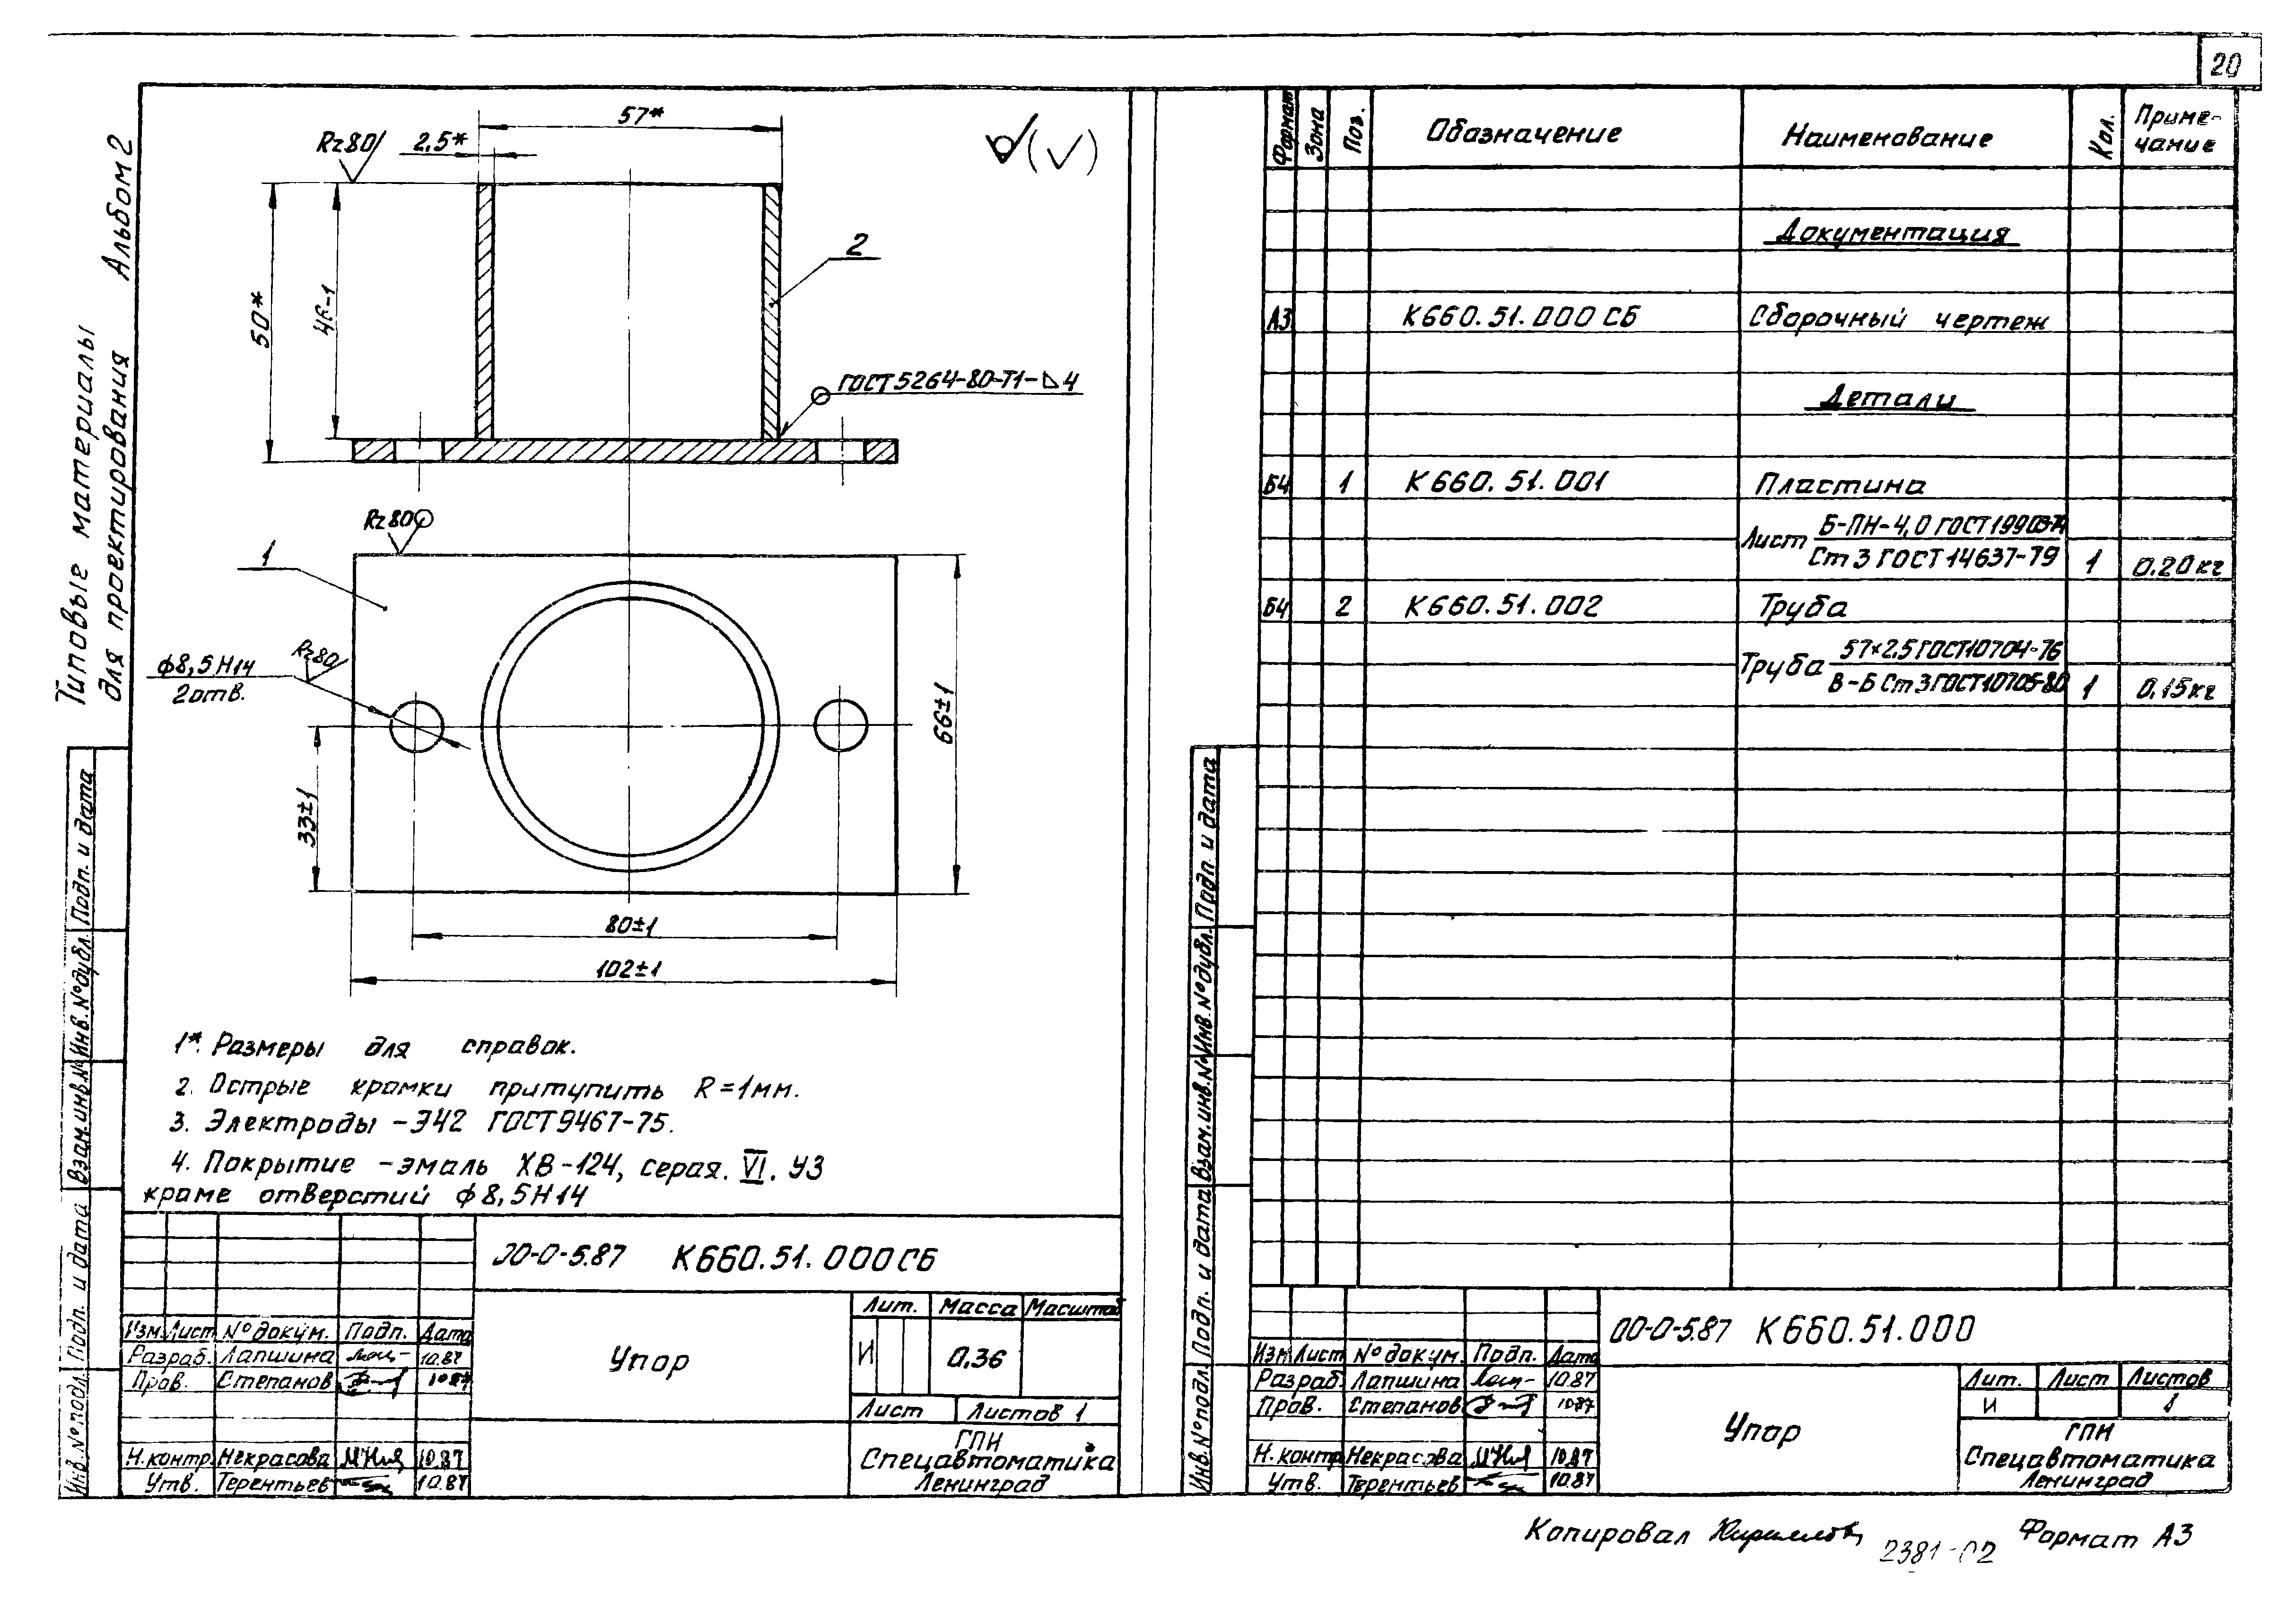 20
Типовые материалы
для проектирования Альбом 2
57*
Rz80
2,5*
(√)
50*
46-1
2
ГОСТ 5264-80-Т1-⊿4
Rz80
1
ϕ8,5Н14
2отв.
Rz80
66±1
33±1
80±1
102±1
1*. Размеры для справок.
2. Острые кромки притупить R=1мм.
3. Электроды -Э42 ГОСТ 9467-75.
4. Покрытие -эмаль ХВ-124, серая. VI. У3
кроме отверстий ϕ8,5Н14
00-0-5.87 К660.51.000СБ
Лит. Масса Масштаб
Изм. Лист № докум. Подп. Дата
Разраб. Лапшина 10.87
Пров. Степанов 10.87
Н.контр. Некрасова 10.87
Утв. Терентьев 10.87
Упор
И 0,36
Лист Листов 1
ГПИ
Спецавтоматика
Ленинград
Инв. № подл. Подп. и дата Взам.инв.№ Инв.№ дубл. Подп. и дата
Формат Зона Поз. Обозначение Наименование Кол. Приме-
чание
Документация
А3 К660.51.000 СБ Сборочный чертеж
Детали
Б4 1 К660.51.001 Пластина
Лист Б-ПН-4,0 ГОСТ 19903-74
Ст 3 ГОСТ 14637-79 1 0.20 кг
Б4 2 К660.51.002 Труба
Труба 57×2.5 ГОСТ 10704-76
В-Б Ст 3 ГОСТ 10705-80 1 0,15 кг
Инв. № подл. Подп. и дата Взам.инв.№ Инв.№ дубл. Подп. и дата
00-0-5.87 К660.51.000
Изм. Лист № докум. Подп. Дата
Разраб. Лапшина 10.87
Пров. Степанов 10.87
Н.контр. Некрасова 10.87
Утв. Терентьев 10.87
Упор
Лит. Лист Листов
И 1
ГПИ
Спецавтоматика
Ленинград
Копировал 2381-02 Формат А3